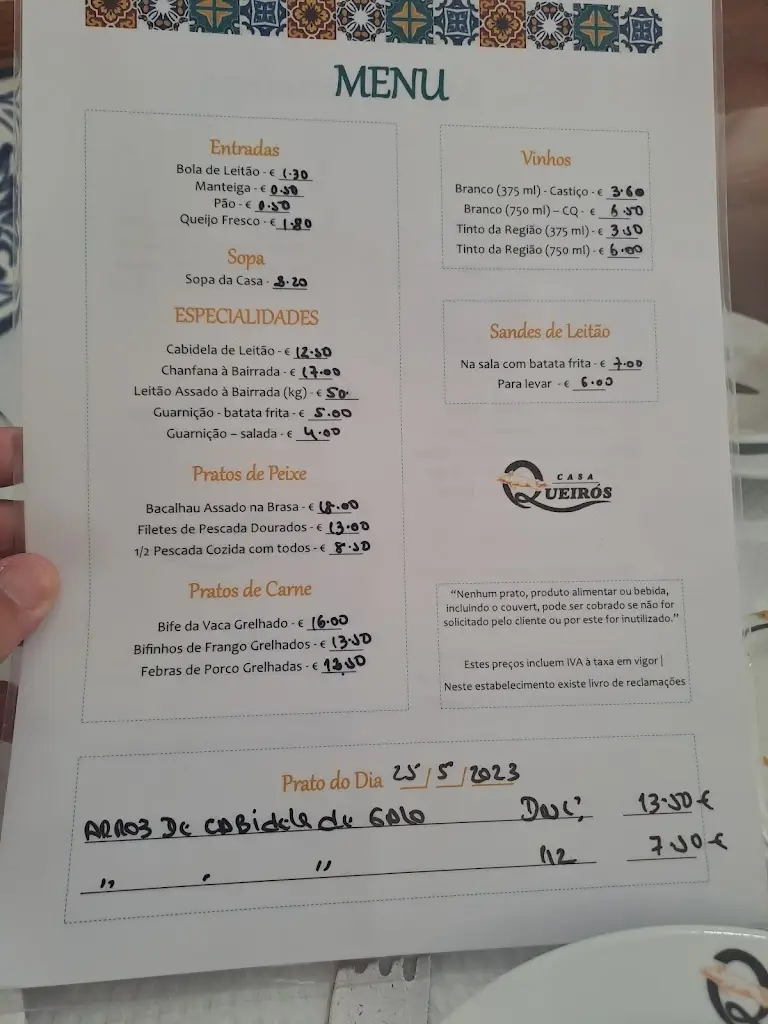 MENU
Entradas
Bola de Leitão - € 1.30
Manteiga - € 0.50
Pão - € 0.50
Queijo Fresco - € 1.80
Sopa
Sopa da Casa - 3.20
ESPECIALIDADES
Cabidela de Leitão - € 12.50
Chanfana à Bairrada - € 17.00
Leitão Assado à Bairrada (kg) - € 50.
Guarnição - batata frita - € 5.00
Guarnição – salada - € 4.00
Pratos de Peixe
Bacalhau Assado na Brasa - € 18.00
Filetes de Pescada Dourados - € 13.00
1/2 Pescada Cozida com todos - € 8.50
Pratos de Carne
Bife da Vaca Grelhado - € 16.00
Bifinhos de Frango Grelhados - € 13.50
Febras de Porco Grelhadas - € 12.50
Vinhos
Branco (375 ml) - Castiço - € 3.60
Branco (750 ml) – CQ - € 6.50
Tinto da Região (375 ml) - € 3.50
Tinto da Região (750 ml) - € 6.00
Sandes de Leitão
Na sala com batata frita - € 7.00
Para levar - € 6.00
CASA
QUEIRÓS
“Nenhum prato, produto alimentar ou bebida,
incluindo o couvert, pode ser cobrado se não for
solicitado pelo cliente ou por este for inutilizado.”
Estes preços incluem IVA à taxa em vigor |
Neste estabelecimento existe livro de reclamações
Prato do Dia 25/5/2023
ARROZ De CABidela de GALO 13.50 €
" " " 1/2 7.50 €